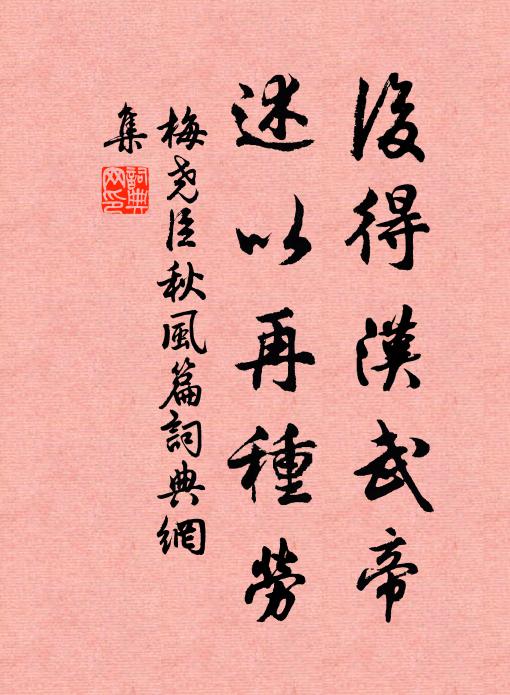 後得漢武帝
述以再種勞
梅堯臣秋風篇詞典網
集
詞典
网印